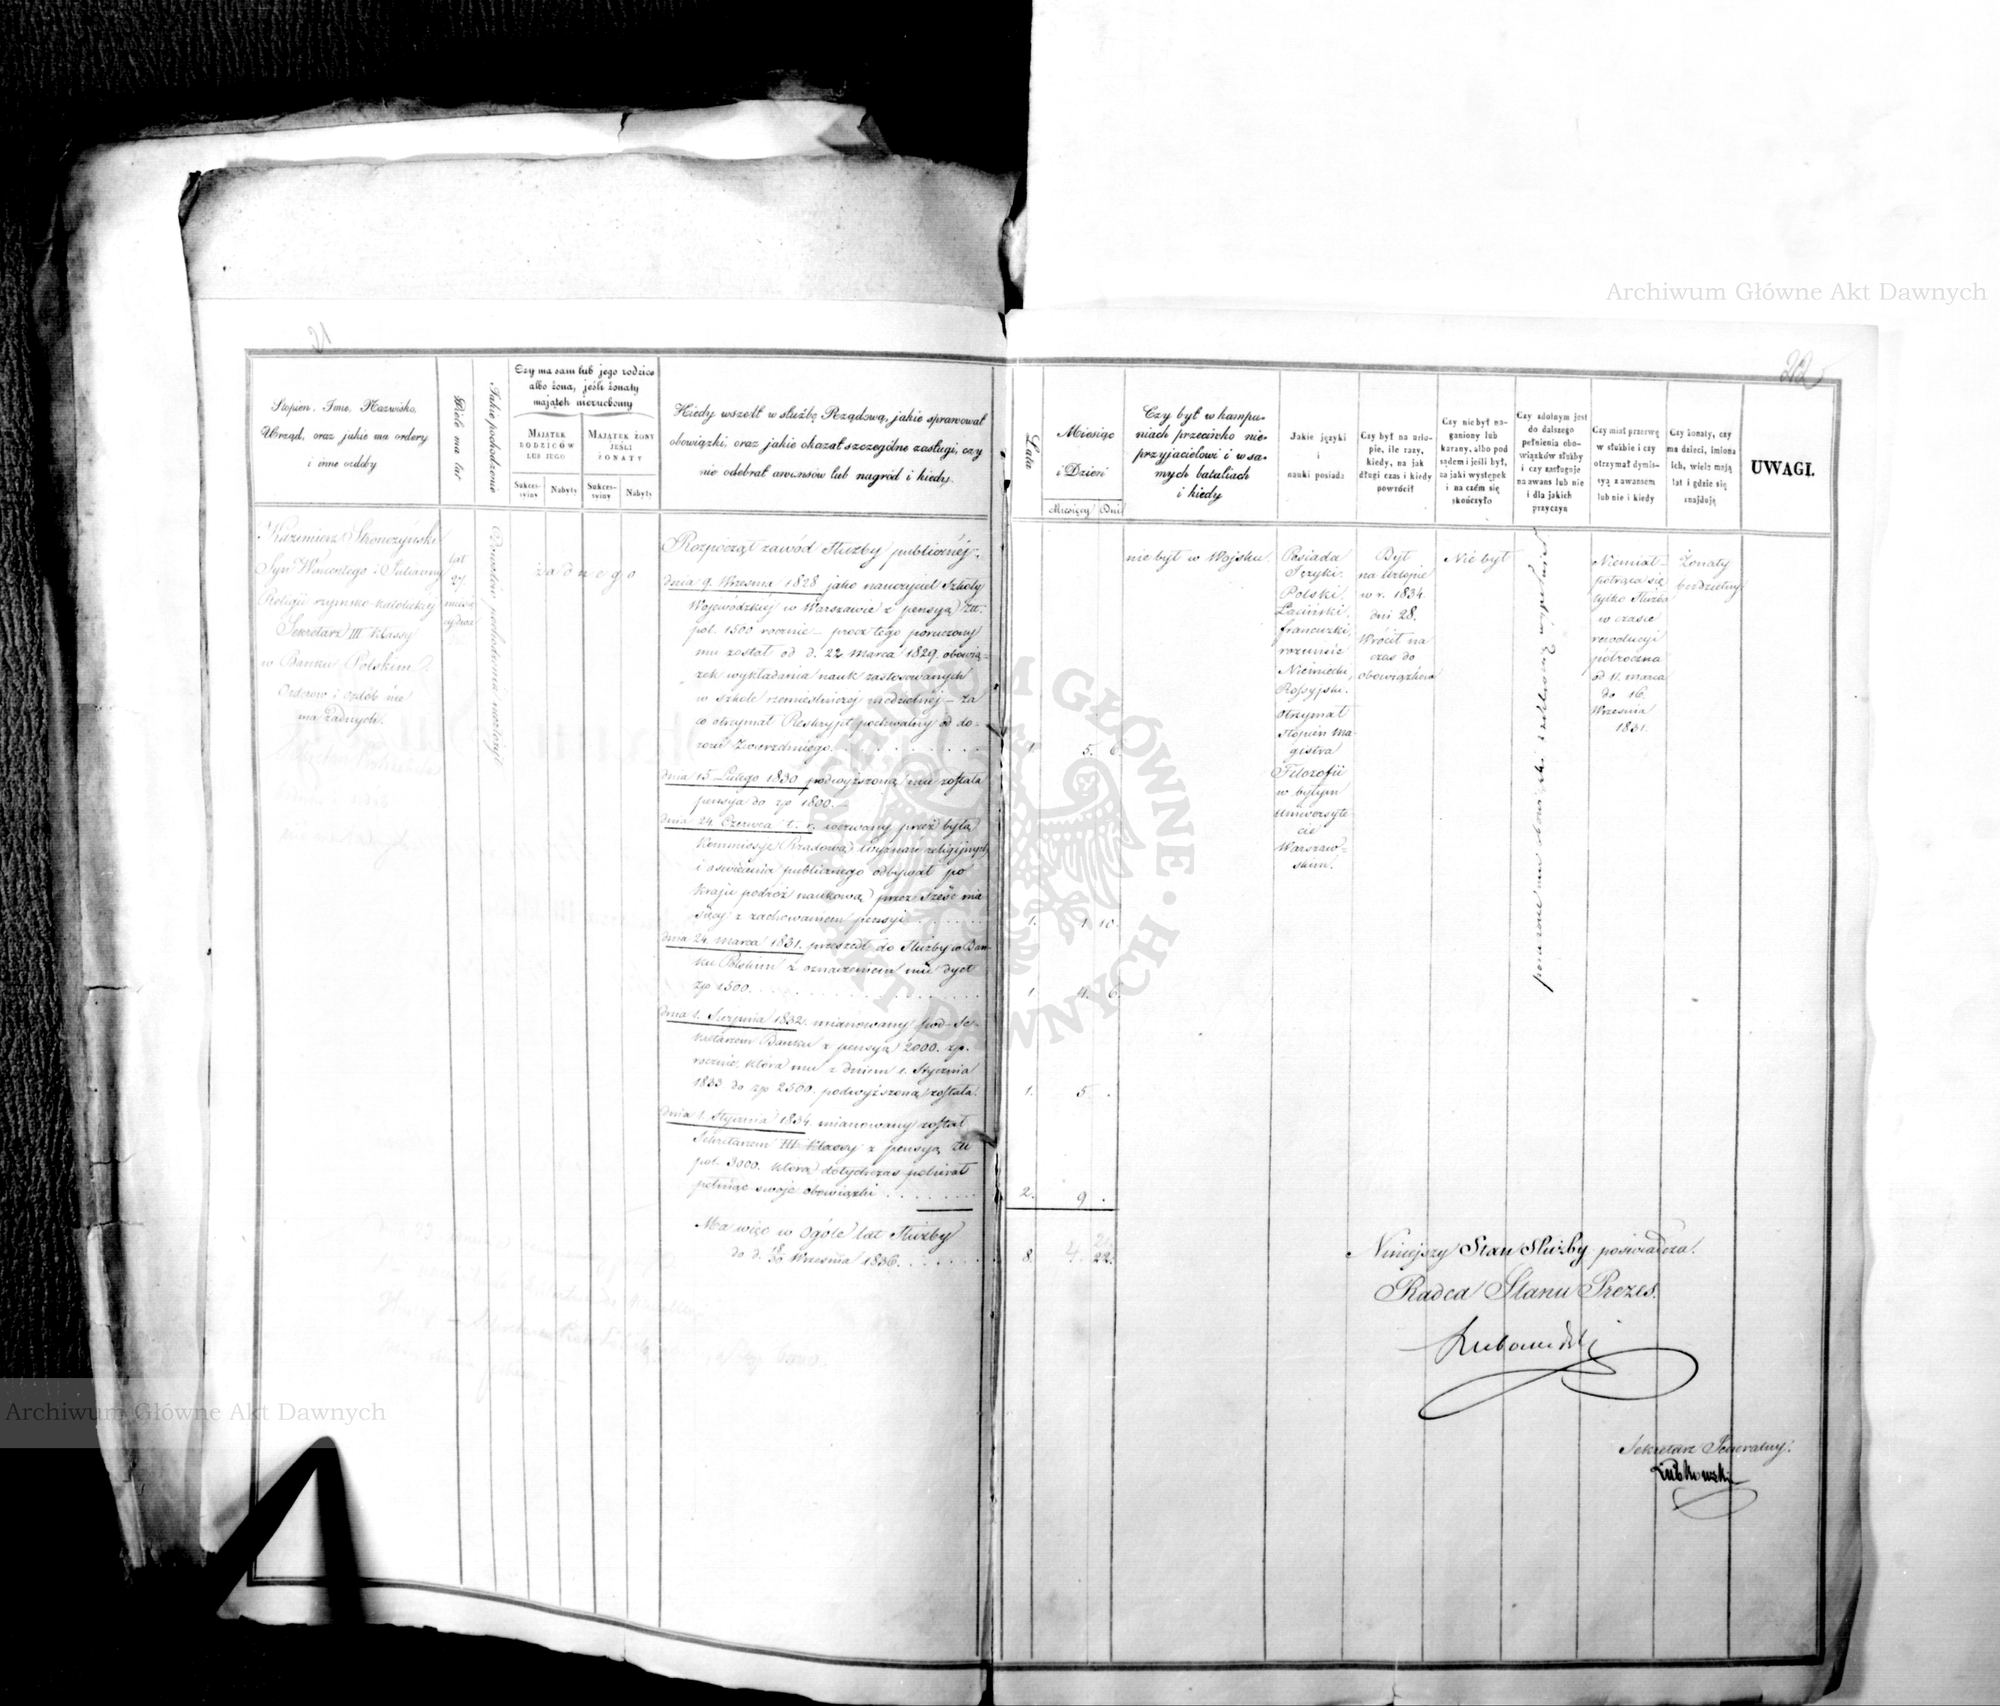 Archiwum Główne Akt Dawnych
21
225
Stopień, Imie, Nazwisko,
Urząd, oraz jakie ma ordery
i inne ozdoby
Wiele ma lat
Jakie pochodzenie
Czy ma sam lub jego rodzice
albo żona, jeśli żonaty
majątek nieruchomy
MAJĄTEK
RODZICÓW
LUB JEGO
MAJĄTEK ŻONY
JEŚLI
ŻONATY
Sukces-
syiny
Nabyty
Sukces-
syiny
Nabyty
Kiedy wszedł w służbę Rządową, jakie sprawował
obowiązki, oraz jakie okazał szczególne zasługi, czy
nie odebrał awansów lub nagród i kiedy.
Lata
Miesiąc
i Dzień
Miesięcy
Dni
Czy był w kampa-
niach przeciwko nie-
przyjacielowi i w sa-
mych bataliach
i kiedy
Jakie języki
i
nauki posiada
Czy był na urlo-
pie, ile razy,
kiedy, na jak
długi czas i kiedy
powrócił
Czy nie był na-
ganiony lub
karany, albo pod
sądem i jeśli był,
za jaki występek
i na czém się
skończyło
Czy zdolnym jest
do dalszego
pełnienia obo-
wiązków służby
i czy zasługuje
na awans lub nie
i dla jakich
przyczyn
Czy miał przerwę
w służbie i czy
otrzymał dymis-
syą z awansem
lub nie i kiedy
Czy żonaty, czy
ma dzieci, imiona
ich, wiele mają
lat i gdzie się
znajdują
UWAGI.
Kazimierz Stronczyński
Syn Wincentego i Julianny
Religii rzymsko-katolickiej
Sekretarz III klassy
w Banku Polskim.
Orderów i ozdób nie
ma żadnych.
lat
27
Dowodów pochodzenia nie złożył
żadnego
Rozpoczął zawód Służby publicznéj.
dnia 9. Września 1828 jako nauczyciel Szkoły
Wojewódzkiéj w Warszawie z pensyą Zł.
pol. 1500 rocznie – prócz tego poruczony
mu został od d. 22 marca 1829. obowią-
zek wykładania nauk zastosowanych
w szkole rzemieślniczej niedzielnéj – za
co otrzymał Reskrypt pochwalny od do-
zoru Zwierzchniego.
1. 5. 6.
dnia 15 Lutego 1830 podwyższoną mu została
pensya do zp 1800.
dnia 24. Czerwca t. r. wezwany przez byłą
Kommissyę Rządową wyznań religijnych
i oświecenia publicznego odbywał po
kraju podróż naukową przez sześć mie
sięcy z zachowaniem pensyi
1. 1 10.
dnia 24. marca 1831. przeszedł do Służby w Ban-
ku Polskim z oznaczeniem mu dyet
zp 1500.
1. 4. 6.
dnia 1. Sierpnia 1832. mianowany pod-Se-
kretarzem Banku z pensyą 2000. zp.
rocznie, która mu z dniem 1. Stycznia
1833 do zp 2500. podwyższoną została.
1. 5 .
dnia 1. Stycznia 1834. mianowany został
Sekretarzem III klassy z pensyą Zł
pol. 3000. którą dotychczas pobierał
pełniąc swoje obowiązki
2. 9 .
Ma więc w Ogóle lat Służby
do d. 18/30 Września 1836.
8. 4. 22.
nie był w Wojsku.
Posiada
Języki.
Polski,
Łaciński,
francuzki,
rozumie
Niemiecki,
Rossyjski.
otrzymał
stopień Ma-
gistra
Filozofii
w byłym
Uniwersyte
cie
Warszaw-
skim.
Był
na Urlopie
w r. 1834.
dni 28.
Wrócił na
czas do
obowiązków
Nie był
Niemiał
potrąca się
tylko Służba
w czasie
rewolucyi
półroczna
od 11. marca
do 16.
Września
1831.
Żonaty
bezdzietny
Niniejszy Stan Służby poświadcza.
Radca Stanu Prezes.
Lubowidzki
Sekretarz Generalny:
Łubkowski
Archiwum Główne Akt Dawnych
ARCHIWUM GŁÓWNE · AKT DAWNYCH ·